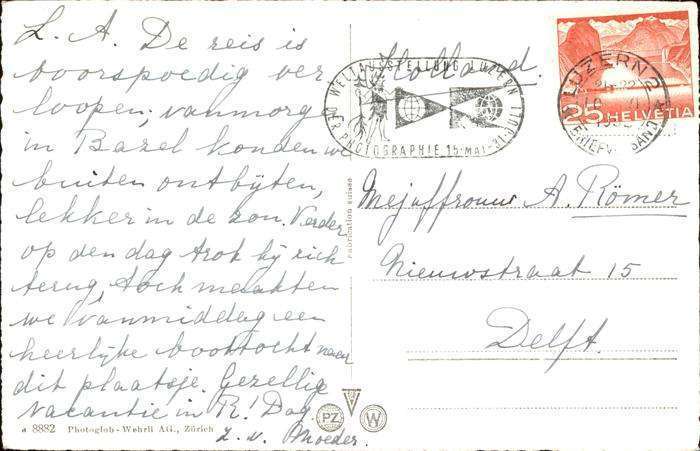 L. A. De reis is
voorspoedig ver
loopen, vanmorge
in Bazel konden we
buiten ontbyten,
lekker in de zon. Verder
op den dag trok hy zich
terug, toch maakten
we vanmiddag een
heerlijke boottocht naar
dit plaatsje. Gezellig
vacantie in R! Dag
L. v. Moeder.
a 8882 Photoglob-Wehrli AG., Zürich
Fabrication suisse
PZ
W
Holland.
WELTAUSSTELLUNG LUZERN
DER PHOTOGRAPHIE 15. MAI-31. JULI
LUZERN 2
BRIEFVERSAND
25 HELVETIA
Mejuffrouw A. Römer
Nieuwstraat 15
Delft.